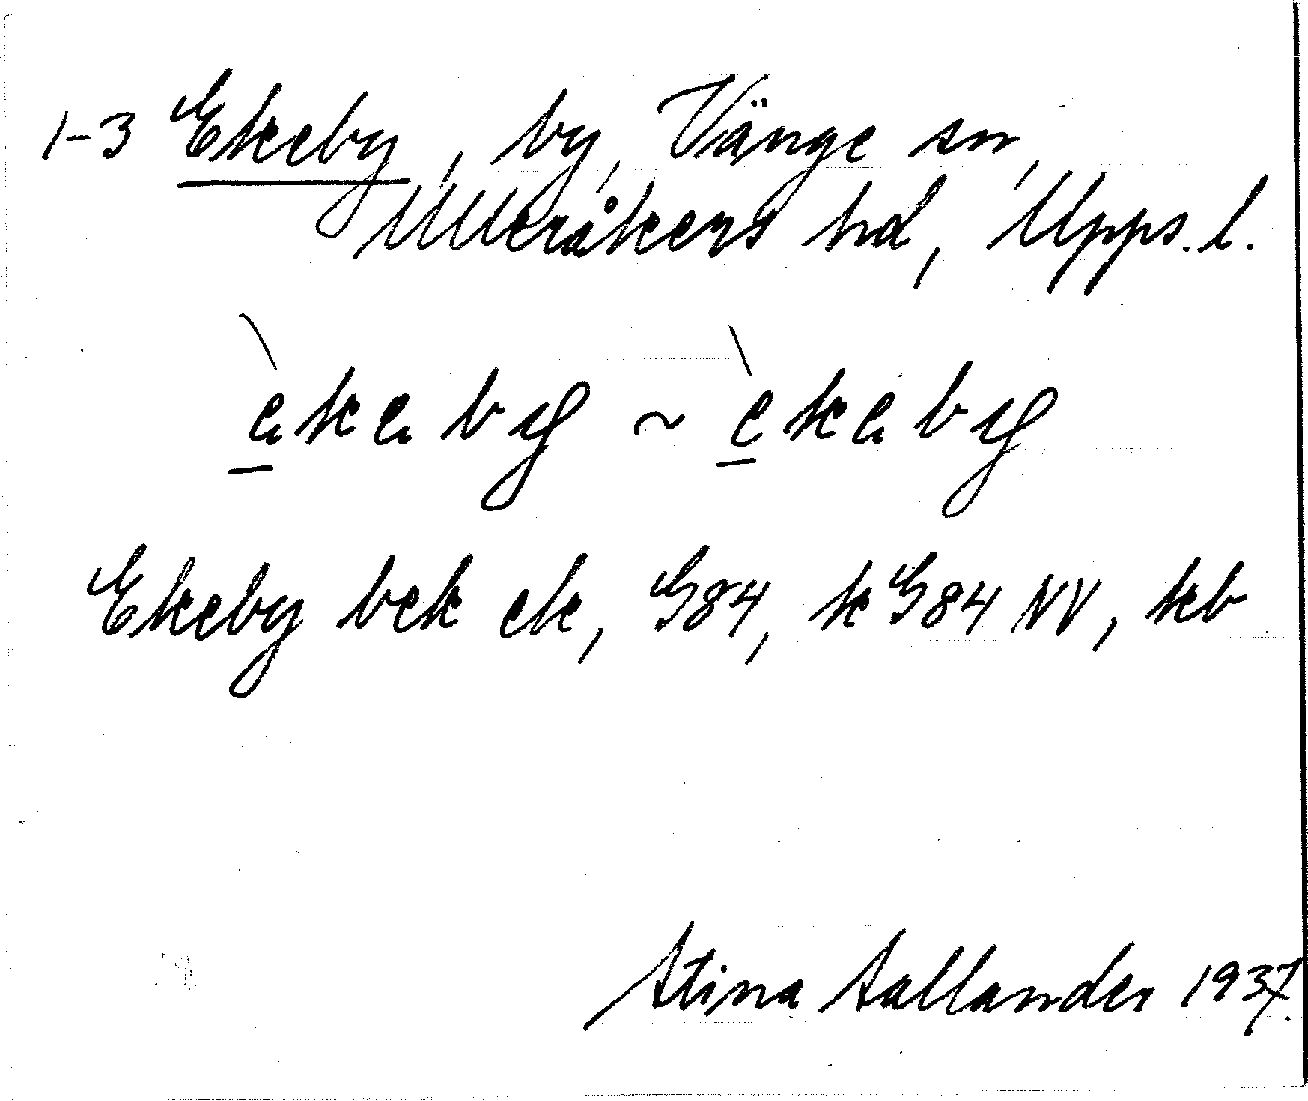 1-3 Ekeby, by, Vänge sn,
Ulleråkers hd, Upps. l.
èkeby ~ èkeby
Ekeby bek ek, G84, kG84 NV, kb
Stina Sallander 1937.